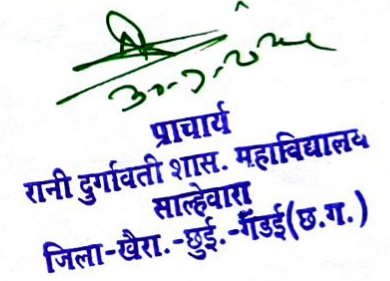 प्राचार्य
रानी दुर्गावती शास. महाविद्यालय
साल्हेवारा
जिला-खैरा.-छुई.-गँडई(छ.ग.)